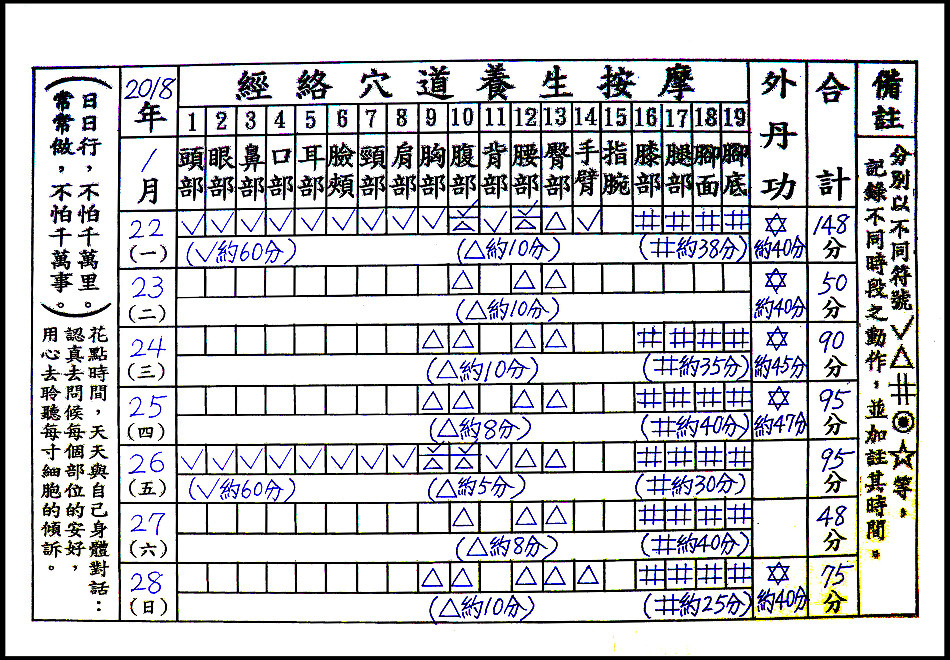 2018年
1月
經絡穴道養生按摩
外丹功
合計
備註
1 2 3 4 5 6 7 8 9 10 11 12 13 14 15 16 17 18 19
頭部 眼部 鼻部 口部 耳部 臉頰 頸部 肩部 胸部 腹部 背部 腰部 臀部 手臂 指腕 膝部 腿部 腳面 腳底
22 √ √ √ √ √ √ √ √ √ √△ √ √△ △ √ 井 井 井 井 ✡ 148
(一) (√約60分) (△約10分) (井約38分) 約40分 分
23 △ △ △ ✡ 50
(二) (△約10分) 約40分 分
24 △ △ △ △ 井 井 井 井 ✡ 90
(三) (△約10分) (井約35分) 約45分 分
25 △ △ △ △ 井 井 井 井 ✡ 95
(四) (△約8分) (井約40分) 約47分 分
26 √ √ √ √ √ √ √ √ √△ √△ √ △ △ 井 井 井 井 95
(五) (√約60分) (△約5分) (井約30分) 分
27 △ △ △ 井 井 井 井 48
(六) (△約8分) (井約40分) 分
28 △ △ △ △ △ 井 井 井 井 ✡ 75
(日) (△約10分) (井約25分) 約40分 分
分別以不同符號√△井◉☆等，
記錄不同時段之動作，並加註其時間。
(日日行，不怕千萬里。
常常做，不怕千萬事。)
花點時間，天天與自己身體對話：
認真去問候每個部位的安好，
用心去聆聽每寸細胞的傾訴。